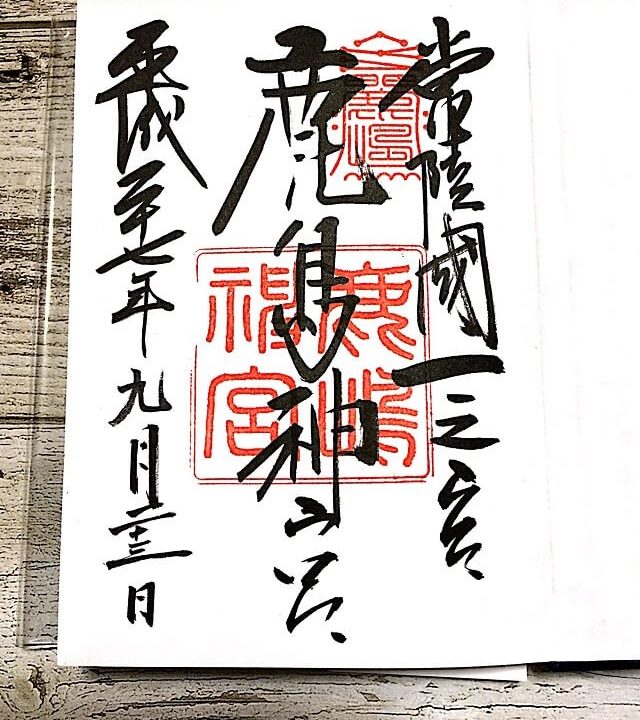 常陸國一之宮
鹿島神宮
平成二十七年九月二十三日
鹿嶋
神宮